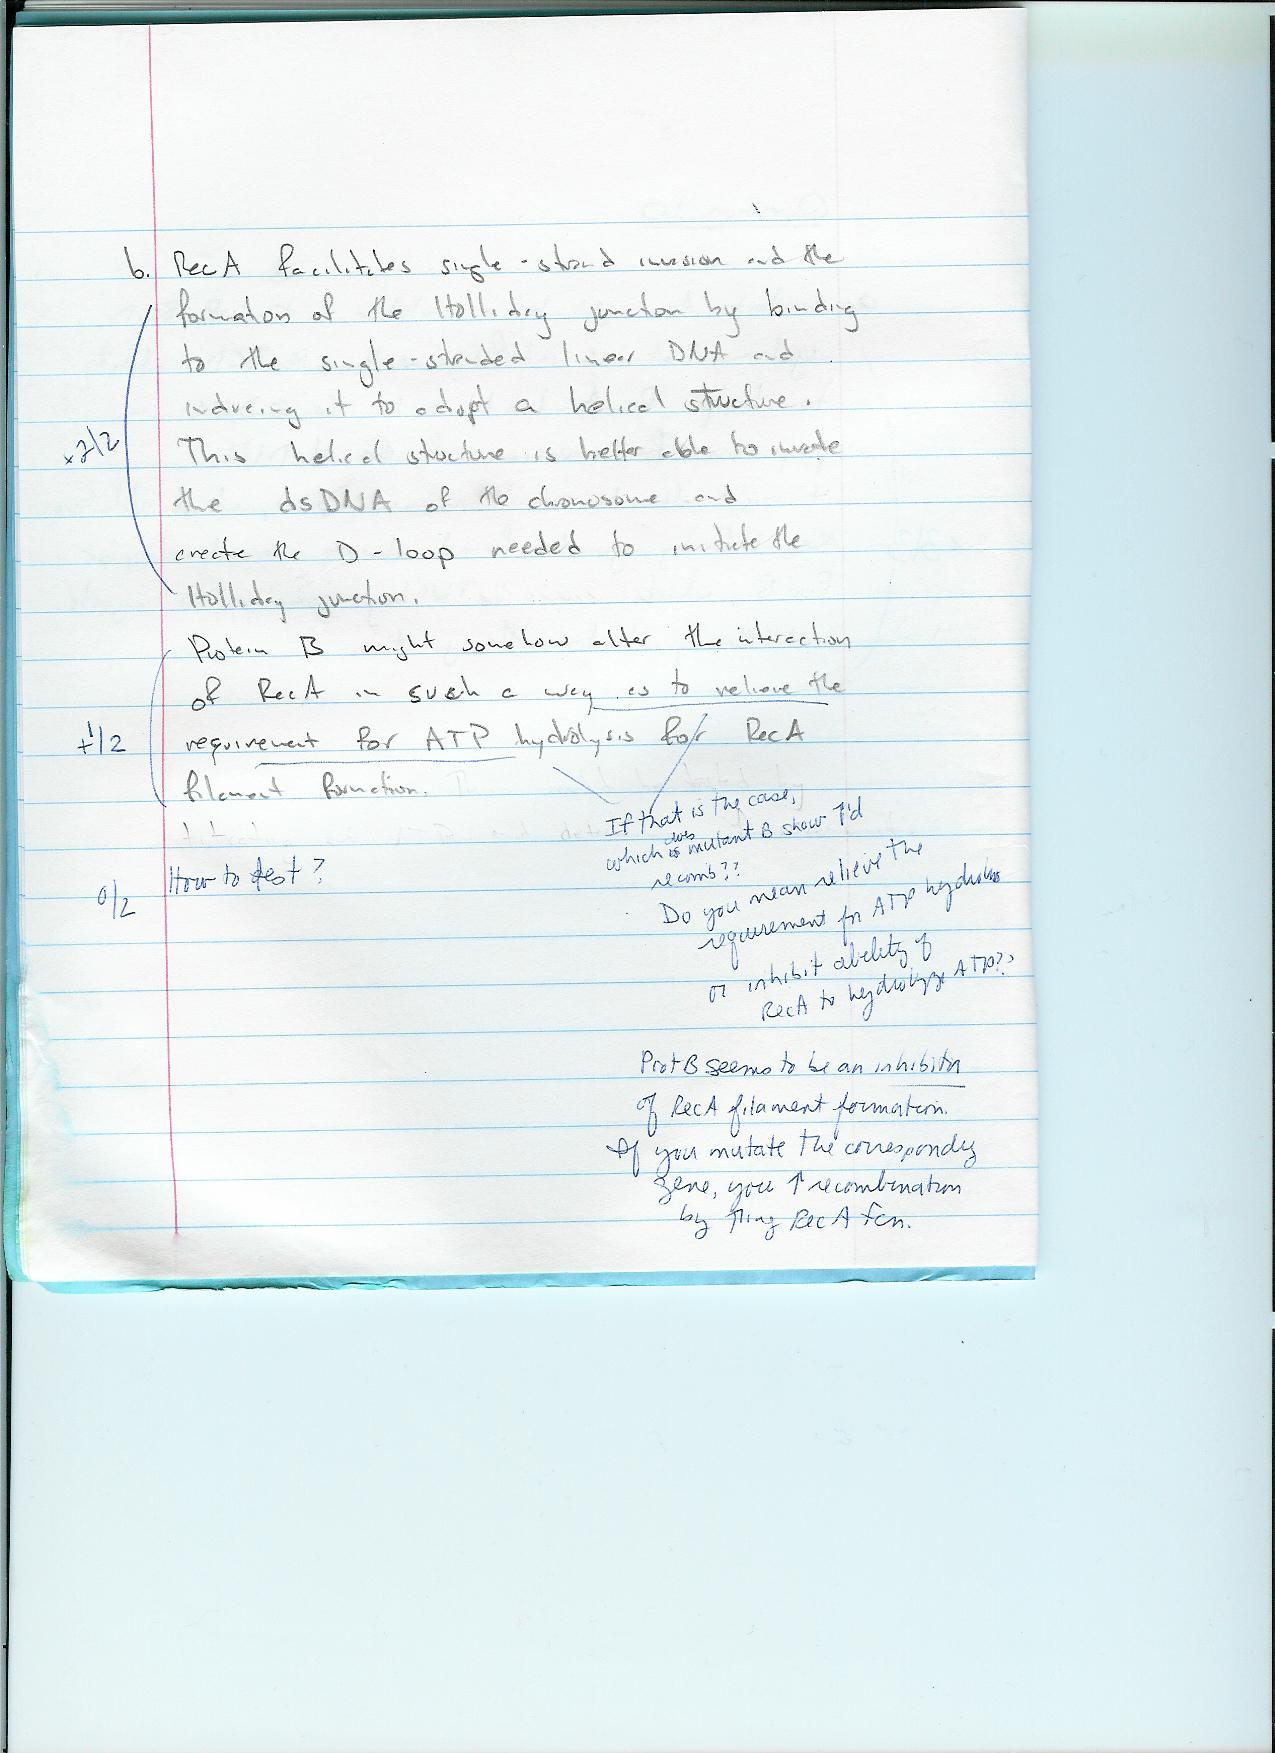 b. RecA facilitates single-strand invasion and the
formation of the Holliday junction by binding
to the single-stranded linear DNA and
inducing it to adopt a helical structure.
x2/2
This helical structure is better able to invade
the dsDNA of the chromosome and
create the D-loop needed to initiate the
Holliday junction.
Protein B might somehow alter the interaction
of RecA in such a way as to relieve the
+1/2
requirement for ATP hydrolysis for RecA
filament formation.
If that is the case,
which does mutant B show ↑'d
recomb??
Do you mean relieve the
requirement for ATP hydrolysis
or inhibit ability of
RecA to hydrolyze ATP??
0/2
How to test?
Prot B seems to be an inhibitor
of RecA filament formation.
If you mutate the corresponding
gene, you ↑ recombination
by ↑ing RecA fcn.